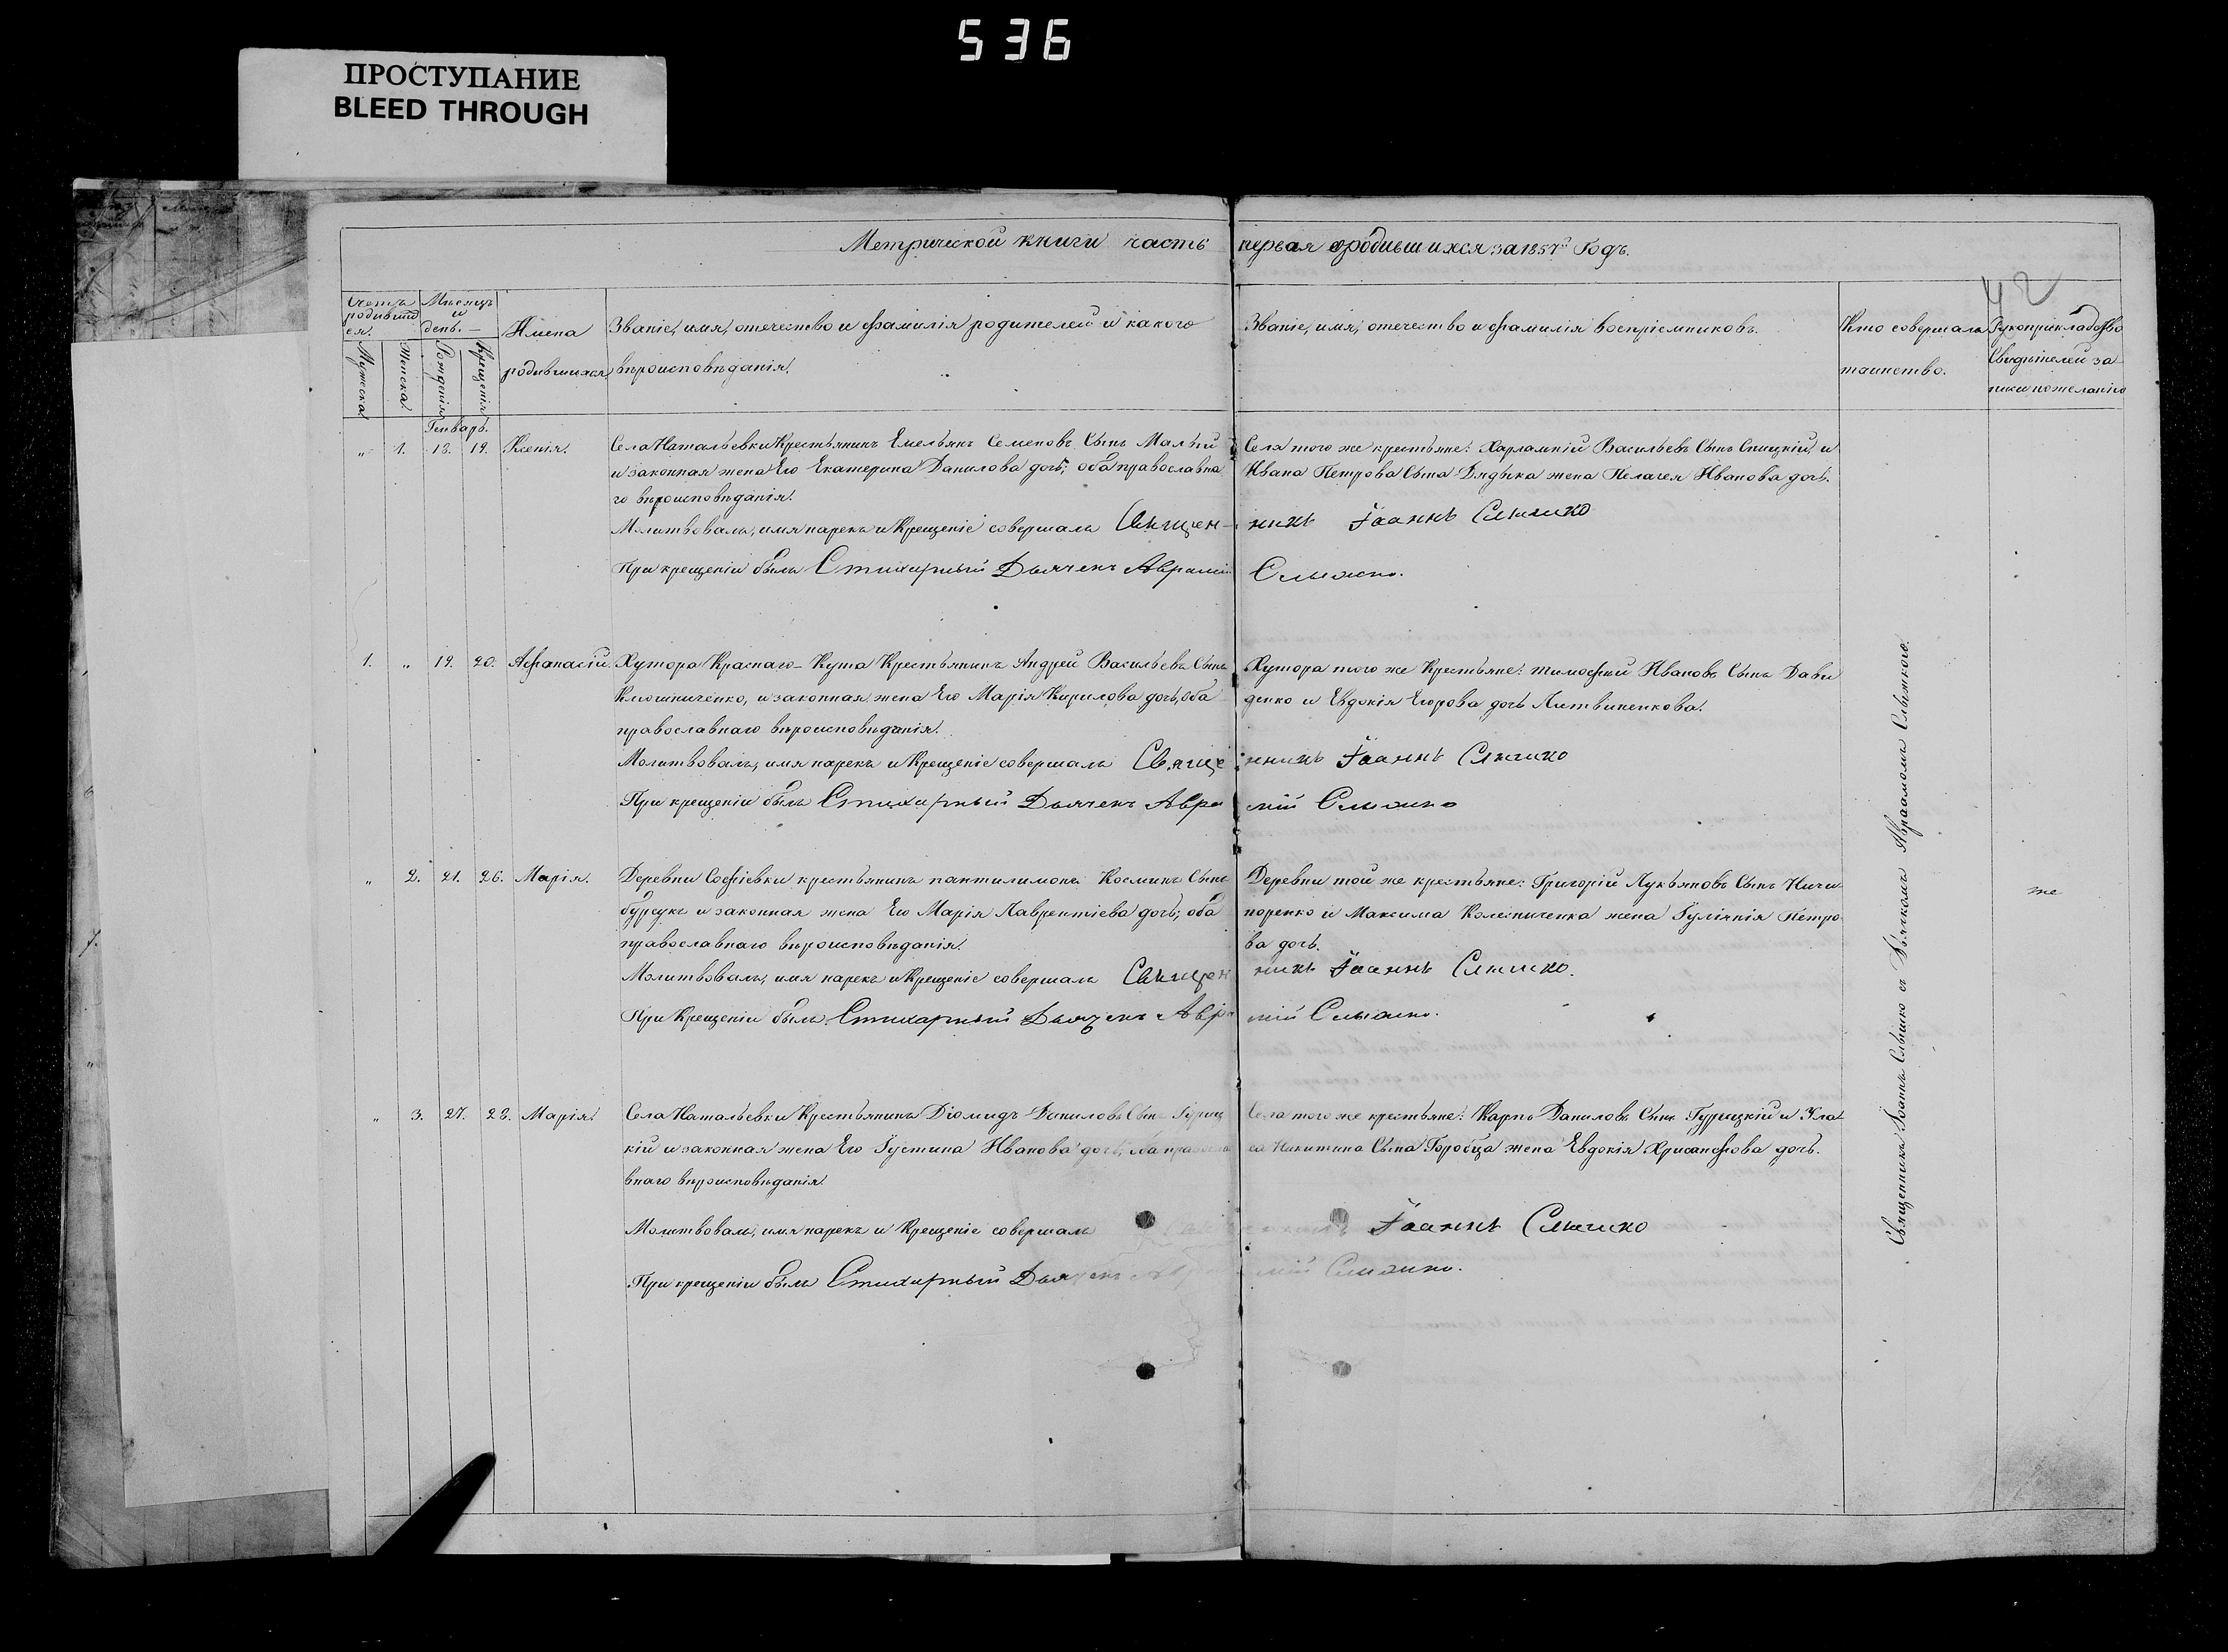 536
ПРОСТУПАНИЕ
BLEED THROUGH
Метрической книги часть первая о родившихся за 1857й Годъ.
42
Счетъ родивших
ся.
Мужеска
Женска
Мѣсяцъ
и
день.
Рожденія
Крещенія
Имена
родившихся
Званіе, имя, отечество и фамилія родителей и какого
вѣроисповѣданія.
Званіе, имя, отечество и фамилія воспріемниковъ.
Кто совершалъ
таинство.
Рукоприкладство
Свидѣтелей за
писи по желанію
Генварь.
" 1. 18. 19. Ксенія.
Села Натальевки Крестьянинъ Емельянъ Семеновъ Сынъ Малый
и законная жена Его Екатерина Данилова дочь; оба православна
го вѣроисповѣданія.
Молитвовалъ, имя нарекъ и Крещеніе совершалъ Священ-
При крещеніи былъ Стихарный Дьячекъ Аврамій
Села того же крестьяне: Харлампій Васильевъ Сынъ Спицкій, и
Ивана Петрова Сына Дядька жена Пелагея Иванова дочь.
никъ Іоаннъ Слышко
Слышко.
1. " 19. 20. Афанасій.
Хутора Краснаго-Кута Крестьянинъ Андрей Васильевъ Сынъ
Клюшниченко, и законная жена Его Марія Кирилова дочь, оба
православнаго вѣроисповѣданія.
Молитвовалъ, имя нарекъ и Крещеніе совершалъ Свяще
При крещеніи былъ Стихарный Дьячекъ Авра
Хутора того же Крестьяне: Тимофей Ивановъ Сынъ Дави
денко и Евдокія Егорова дочь Литвиненкова.
нникъ Іоаннъ Слышко
мій Слышко
" 2. 21. 26. Марія.
Деревни Софіевки крестьянинъ пантилимонъ Косминъ Сынъ
бурсукъ и законная жена Его Марія Лаврентіева дочь; оба
православнаго вѣроисповѣданія.
Молитвовалъ, имя нарекъ и Крещеніе совершалъ Священ
При Крещеніи былъ Стихарный Дьячекъ Авра
Деревни той же крестьяне: Григорій Лукьяновъ Сынъ Ничи
поренко и Максима Колесниченка жена Іуліянія Петро
ва дочь.
никъ Іоаннъ Слышко.
мій Слышко.
же
" 3. 27. 28. Марія.
Села Натальевки Крестьянинъ Діомидъ Даниловъ Сынъ Гуриц
кій и законная жена Его Іустина Иванова дочь, оба правосла
внаго вѣроисповѣданія.
Молитвовалъ, имя нарекъ и Крещеніе совершалъ
При крещеніи былъ Стихарный Дьячекъ Авра
Села того же крестьяне: Карпъ Даниловъ Сынъ Гурицкій и Ула
са Никитина Сына Горобца жена Евдокія Хрисанфова дочь.
Іоаннъ Слышко
мій Слышко.
Священникъ Іоаннъ Слышко съ Дьячкомъ Авраамомъ Слышкою.